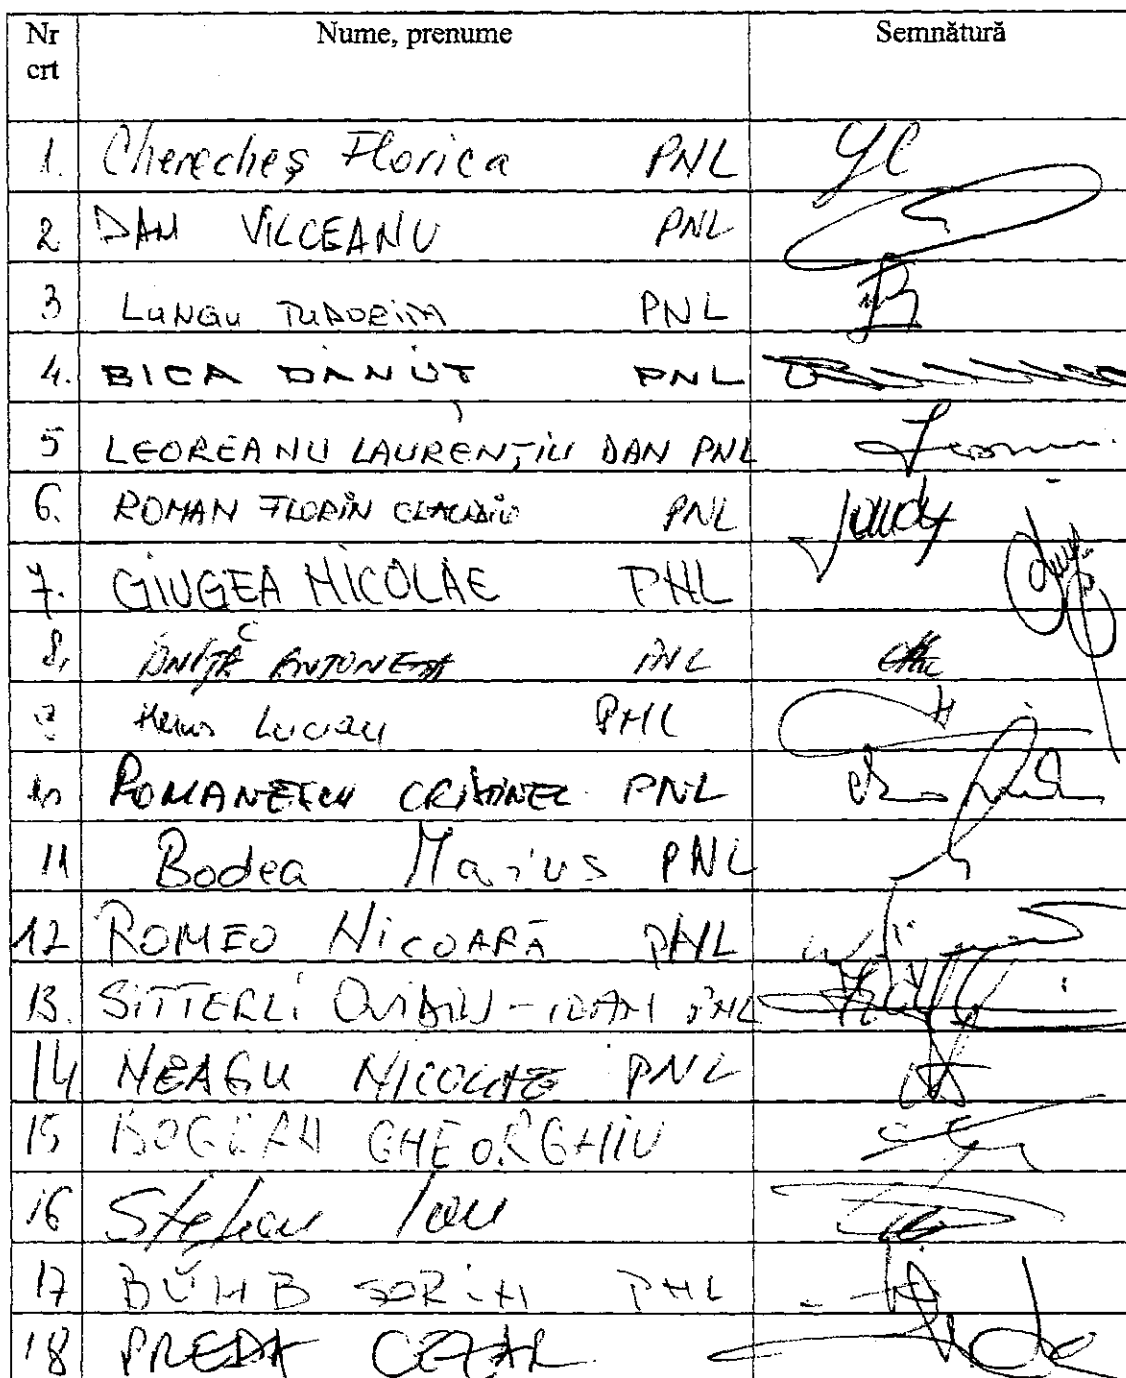 Nr crt Nume, prenume Semnătură
1. Cherecheș Florica PNL
2 DAN VILCEANU PNL
3 LUNGU TUDORIȚA PNL
4. BICA DĂNUȚ PNL
5 LEOREANU LAURENȚIU DAN PNL
6. ROMAN FLORIN CLAUDIU PNL
7. GIUGEA NICOLAE PNL
8. IONIȚĂ ANTONETA PNL
9 Heius Lucian PNL
10 ROMANESCU CRISTINEL PNL
11 Bodea Marius PNL
12 ROMEO NICOARĂ PNL
13. SITTERLI OVIDIU-IOAN PNL
14 NEAGU NICOLAE PNL
15 BOGDAN GHEORGHIU
16 Ștefan Ion
17 BUMB SORIN PNL
18 PREDA CEZAR